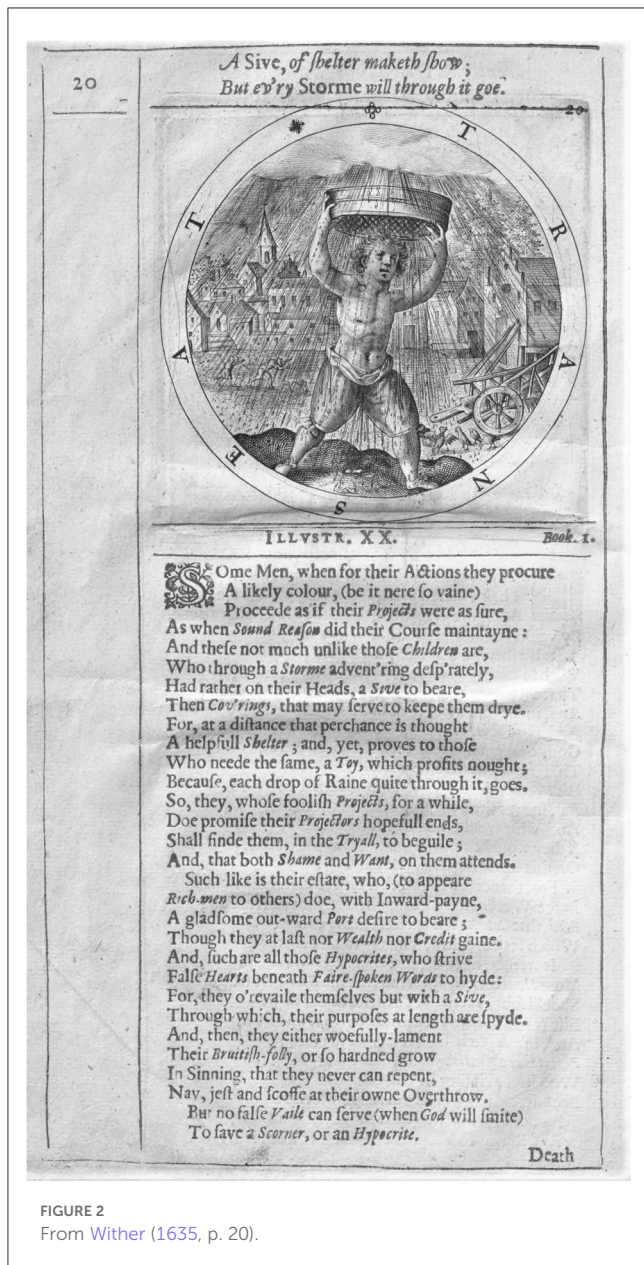 20
A Sive, of ſhelter maketh ſhow;
But ev'ry Storme will through it goe.
20
TRANSEAT
ILLVSTR. XX. Book. 1.
SOme Men, when for their Actions they procure
A likely colour, (be it nere ſo vaine)
Proceede as if their Projects were as ſure,
As when Sound Reaſon did their Courſe maintayne:
And theſe not much unlike thoſe Children are,
Who through a Storme advent'ring deſp'rately,
Had rather on their Heads, a Sive to beare,
Then Cov'rings, that may ſerve to keepe them drye.
For, at a diſtance that perchance is thought
A helpfull Shelter; and, yet, proves to thoſe
Who neede the ſame, a Toy, which profits nought;
Becauſe, each drop of Raine quite through it, goes.
So, they, whoſe fooliſh Projects, for a while,
Doe promiſe their Projectors hopefull ends,
Shall finde them, in the Tryall, to beguile;
And, that both Shame and Want, on them attends.
Such like is their eſtate, who, (to appeare
Rich-men to others) doe, with Inward-payne,
A gladſome out-ward Port deſire to beare;
Though they at laſt nor Wealth nor Credit gaine.
And, ſuch are all thoſe Hypocrites, who ſtrive
Falſe Hearts beneath Faire-ſpoken Words to hyde:
For, they o'revaile themſelves but with a Sive,
Through which, their purpoſes at length are ſpyde.
And, then, they either woefully-lament
Their Bruitiſh-folly, or ſo hardned grow
In Sinning, that they never can repent,
Nay, jeſt and ſcoffe at their owne Overthrow.
But no falſe Vaile can ſerve (when God will ſmite)
To ſave a Scorner, or an Hypocrite.
Death
FIGURE 2
From Wither (1635, p. 20).